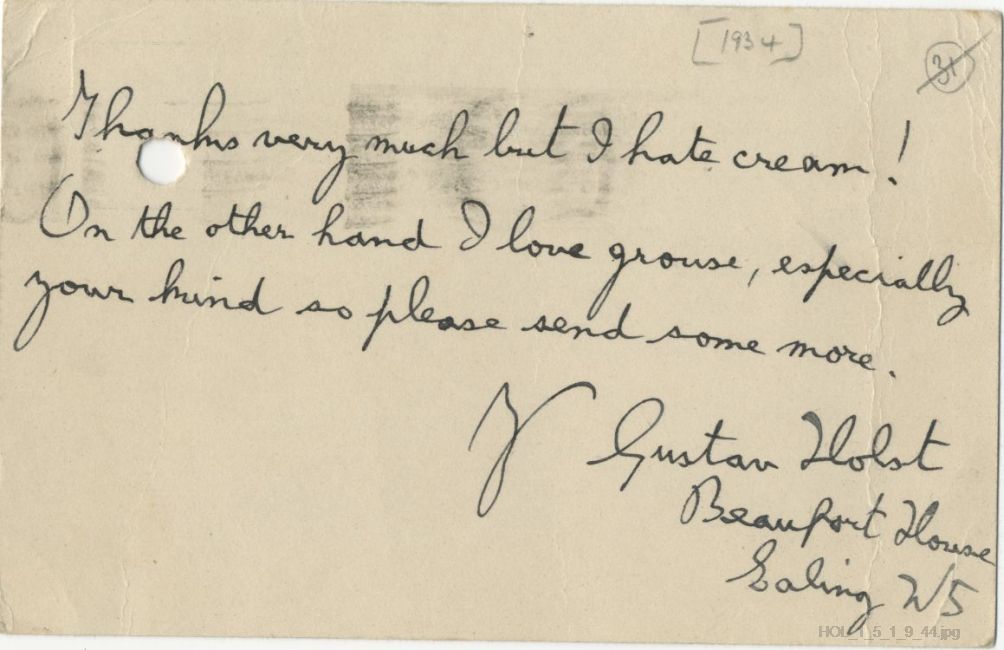 [1934]
31
Thanks very much but I hate cream!
On the other hand I love grouse, especially
your kind so please send some more.
Y Gustav Holst
Beaufort House
Ealing W5
HOL_1_5_1_9_44.jpg